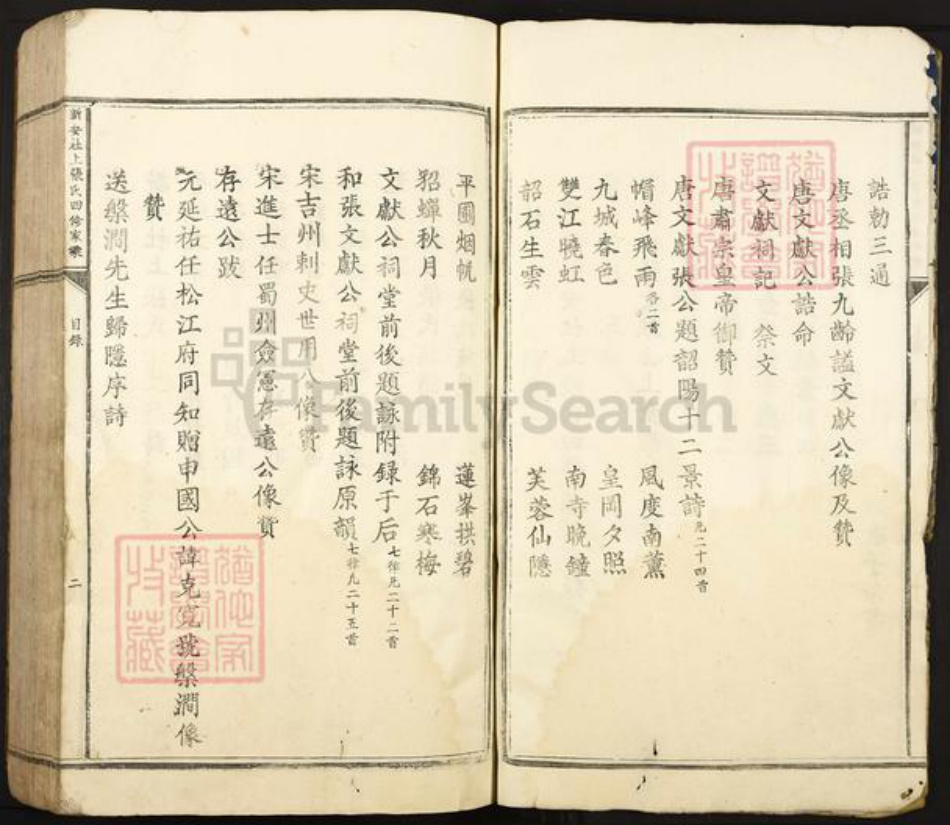 誥勅三通
唐丞相張九齡謚文獻公像及贊
唐文獻公誥命
文獻祠記 祭文
唐肅宗皇帝御贊
唐文獻張公題韶陽十二景詩凡二十四首
帽峰飛雨各二首 風度南薰
九城春色 皇岡夕照
雙江曉虹 南寺晚鐘
韶石生雲 芙蓉仙隱
平圃烟帆 蓮峯拱碧
貂蟬秋月 錦石寒梅
文獻公祠堂前後題詠附録于后七律凡二十二首
和張文獻公祠堂前後題詠原韻七律凡二十五首
宋吉州刺史世用公像贊
宋進士任蜀州僉憲存遠公像贊
存遠公跋
元延祐任松江府同知贈申國公諱克寬號槃澗像
贊
送槃澗先生歸隱序詩
新安社上張氏四修家乘
目録
二
FamilySearch